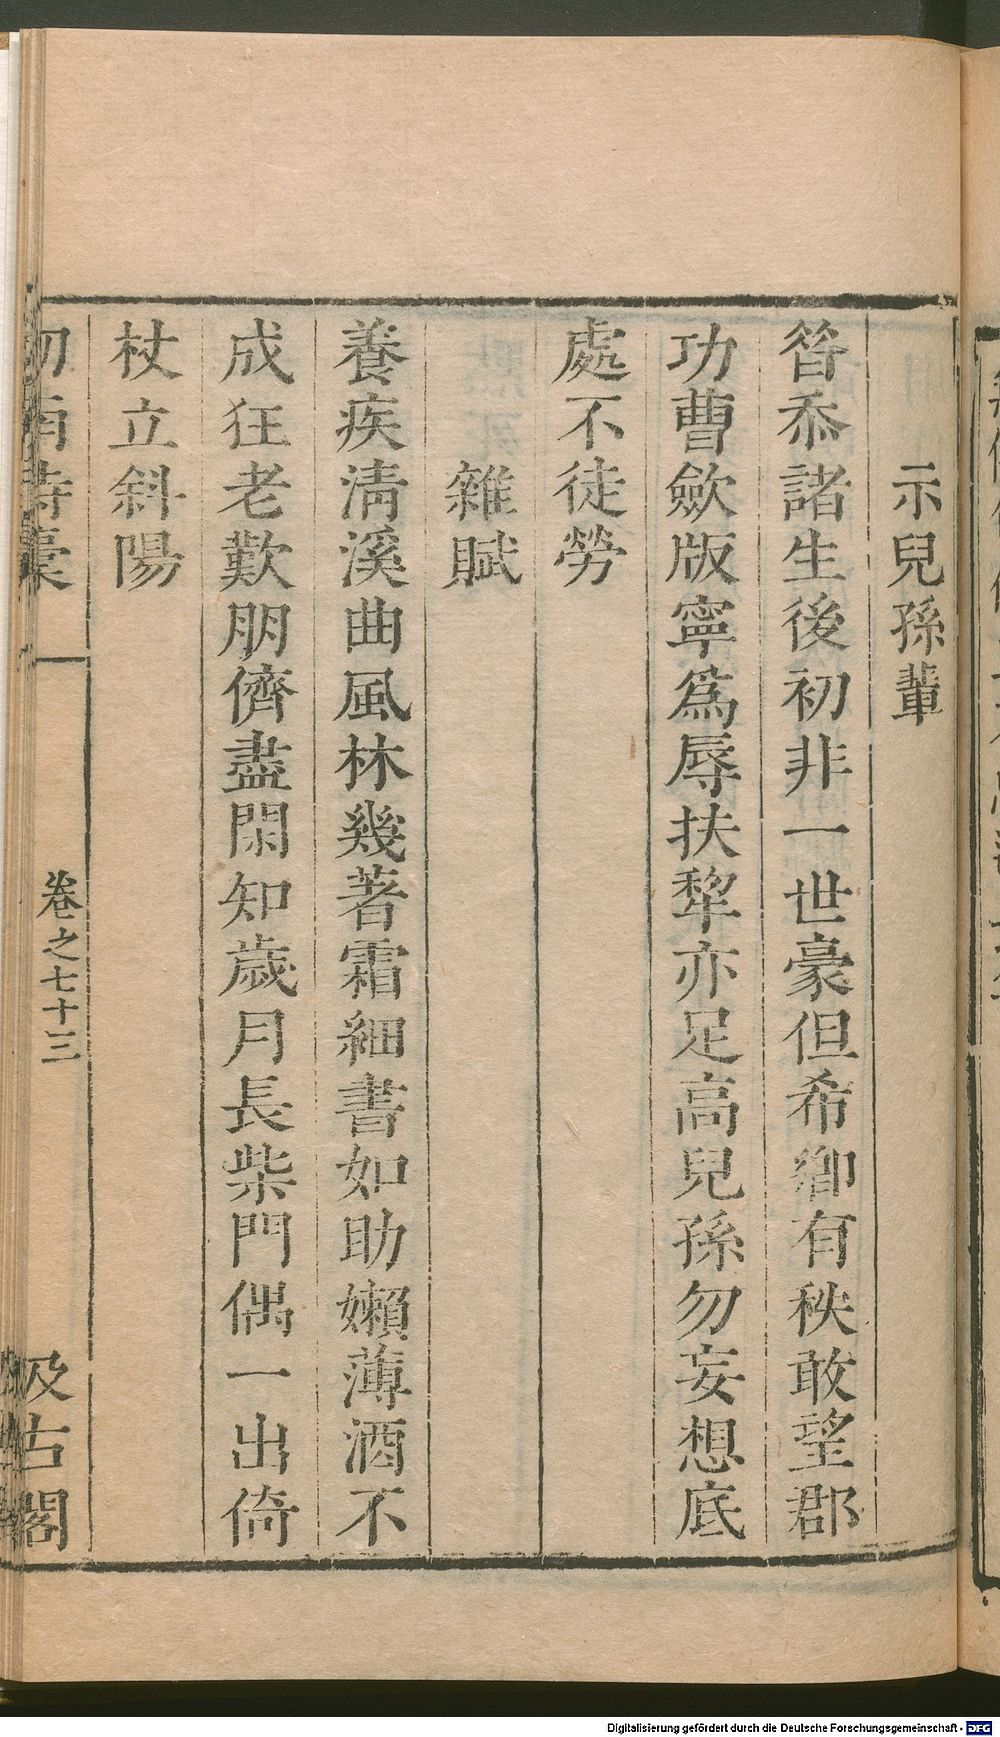 示兒孫輩
昝忝諸生後初非一世豪但希鄉有秩敢望郡
功曹歛版寧爲辱扶犂亦足高兒孫勿妄想底
處不徒勞
雜賦
養疾淸溪曲風林幾著霜細書如助嬾薄酒不
成狂老歎朋儕盡閑知歲月長柴門偶一出倚
杖立斜陽
劒南詩稾
卷之七十三
汲古閣
Digitalisierung gefördert durch die Deutsche Forschungsgemeinschaft - DFG